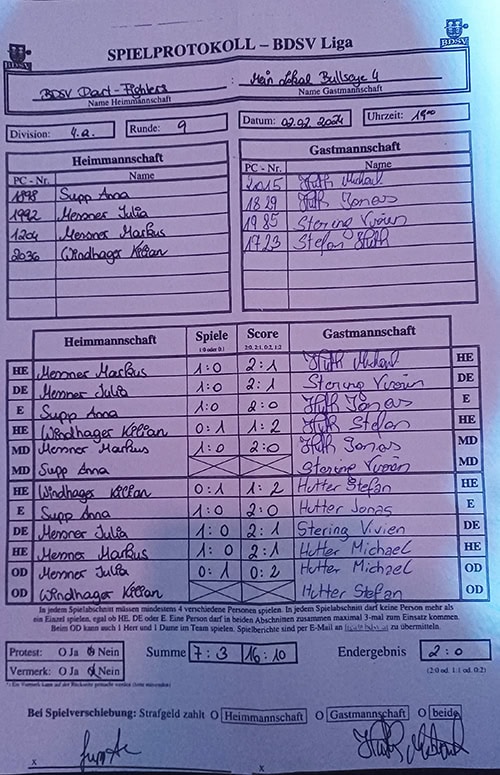 SPIELPROTOKOLL – BDSV Liga
BDSV BDSV
BDSV Dart-Fighters : Mein Lokal Bullseye 4
Name Heimmannschaft Name Gastmannschaft
Division: 4.a. Runde: 9 Datum: 02.02.2024 Uhrzeit: 19⁰⁰
Heimmannschaft Gastmannschaft
PC - Nr. Name PC - Nr. Name
1898 Supp Anna 2015 Huth Michael
1992 Menner Julia 1829 Huth Jonas
1204 Menner Markus 1985 Stering Vivien
2036 Windhager Kilian 1723 Stefan Huth
Heimmannschaft Spiele Score Gastmannschaft
1:0 oder 0:1 2:0, 2:1, 0:2, 1:2
HE Menner Markus 1:0 2:1 Huth Michael HE
DE Menner Julia 1:0 2:1 Stering Vivien DE
E Supp Anna 1:0 2:0 Huth Jonas E
HE Windhager Kilian 0:1 1:2 Huth Stefan HE
MD Menner Markus 1:0 2:0 Huth Jonas MD
MD Supp Anna Stering Vivien MD
HE Windhager Kilian 0:1 1:2 Hutter Stefan HE
E Supp Anna 1:0 2:0 Hutter Jonas E
DE Menner Julia 1:0 2:1 Stering Vivien DE
HE Menner Markus 1:0 2:1 Hutter Michael HE
OD Menner Julia 0:1 0:2 Hutter Michael OD
OD Windhager Kilian Hutter Stefan OD
In jedem Spielabschnitt müssen mindestens 4 verschiedene Personen spielen. In jedem Spielabschnitt darf keine Person mehr als
ein Einzel spielen, egal ob HE, DE oder E. Eine Person darf in beiden Abschnitten zusammen maximal 3-mal zum Einsatz kommen.
Beim OD kann auch 1 Herr und 1 Dame im Team spielen. Spielberichte sind per E-Mail an zu übermitteln.
Protest: O Ja O Nein Summe 7:3 16:10 Endergebnis 2:0
Vermerk: O Ja O Nein (2:0 od. 1:1 od. 0:2)
Bei Spielverschiebung: Strafgeld zahlt O Heimmannschaft O Gastmannschaft O beide
x x